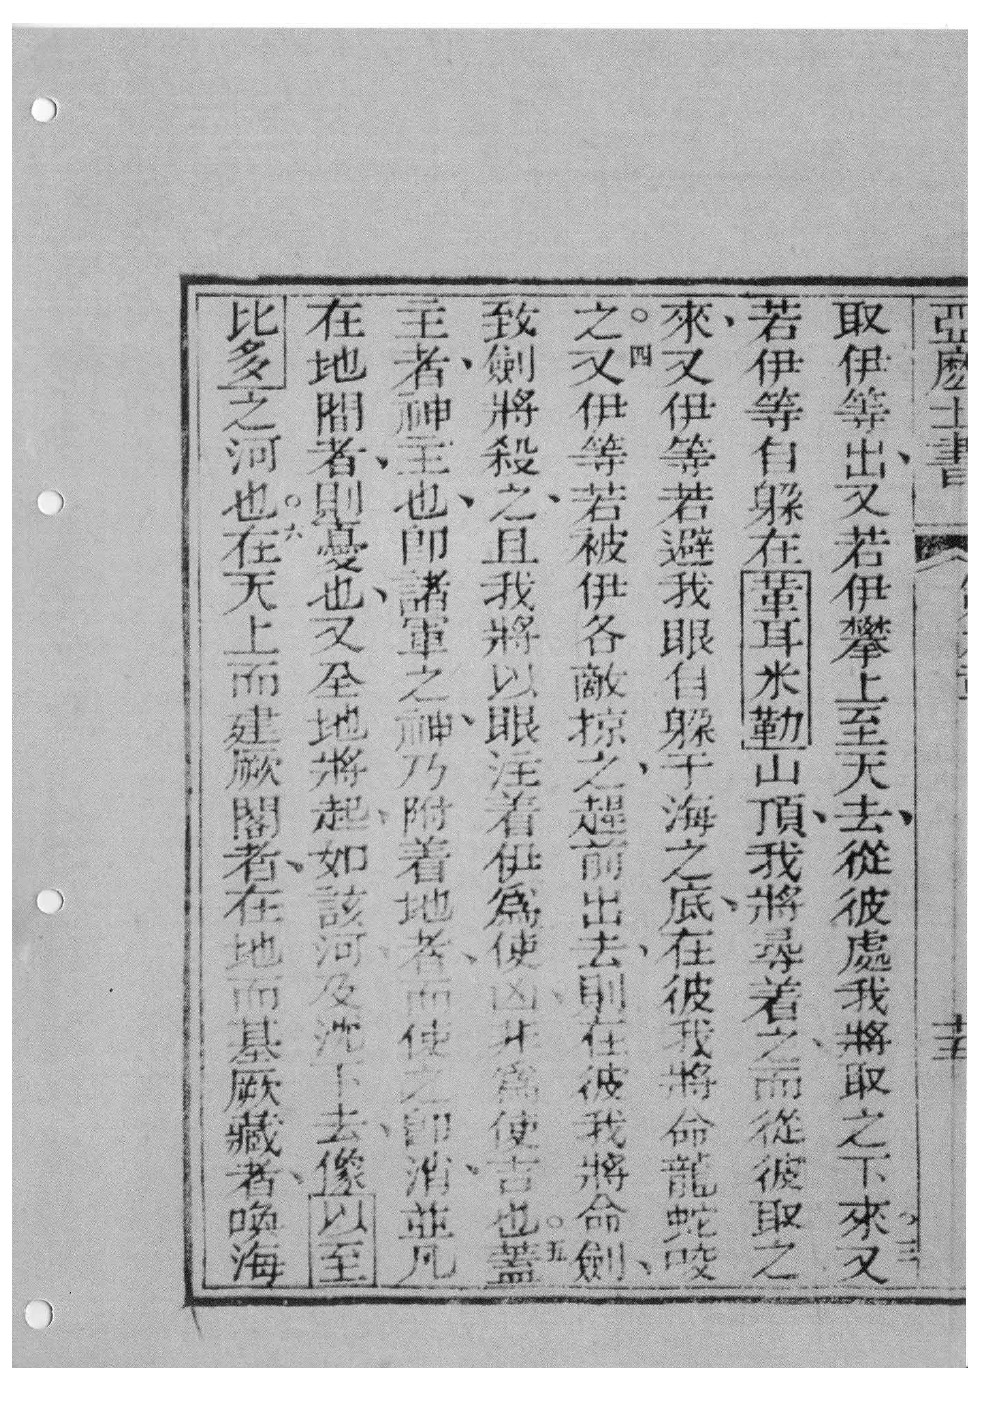 亞麽士書
取伊等出、又若伊攀上至天去、從彼處我將取之下來○三又
若伊等自躲在葷耳米勒山頂、我將尋着之、而從彼取之
來、又伊等若避我眼自躲于海之底、在彼我將命龍蛇咬
之○四又伊等若被伊各敵掠之、趕前出去、則在彼我將命劍、
致劍將殺之、且我將以眼注着伊爲使凶、非爲使吉也○五蓋
主者、神主也、卽諸軍之神、乃附着地者、而使之卽消、並凡
在地間者、則憂也、又全地將起、如該河、及沈下去、像以至
比多之河也○六在天上而建厥閣者、在地而基厥藏者、喚海